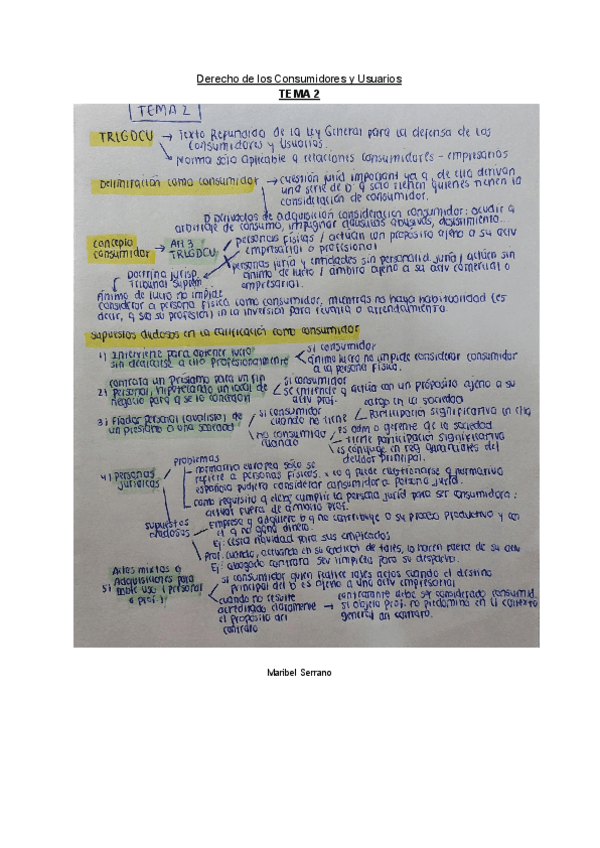 Derecho de los Consumidores y Usuarios
TEMA 2
TEMA 2
TRLGDCU → Texto Refundido de la Ley General para la defensa de los
consumidores y usuarios.
→ Norma solo aplicable a relaciones consumidores - empresarios
Delimitación como consumidor → cuestión juríd important ya q, de ella derivan
una serie de D. q solo tienen quienes tienen la
consideración de consumidor.
D derivados de adquisición consideración consumidor: acudir a
arbitraje de consumo, impugnar cláusulas abusivas, desistimiento...
concepto
consumidor → Art 3
TRLGDCU
personas físicas / actúan con propósito ajeno a su activ
empresarial o profesional
personas juríd y entidades sin personalid juríd / actúen sin
ánimo de lucro / ámbito ajeno a su activ comercial o
empresarial.
Doctrina jurisp.
Tribunal Suprem
Ánimo de lucro no impide
considerar a persona física como consumidor, mientras no haya habitualidad (es
decir, q sea su profesión) en la inversión para reventa o arrendamiento.
supuestos dudosos en la calificación como consumidor
1) Interviene para obtener lucro
sin dedicarse a ello profesionalmente
si consumidor
ánimo lucro no impide considerar consumidor
a la persona física.
2) contrata un préstamo para un fin
personal, hipotecando un local de
negocio para q se lo concedan
si consumidor
se entiende q actúa con un propósito ajeno a su
activ prof.
3) Fiador personal (avalista) de
un préstamo a una sociedad
si consumidor
cuando no tiene
cargo en la sociedad
Participación significativa en ella
no consumidor
cuando
es adm o gerente de la sociedad
tiene participación significativa
es cónyuge en reg gananciales del
deudor principal.
4) Personas
jurídicas
problemas
normativa europea solo se
refiere a personas físicas. x lo q puede cuestionarse q normativa
española pudiera considerar consumidor a persona juríd.
como requisito q debe cumplir la persona juríd para ser consumidora:
actuar fuera de ámbito prof.
supuestos
dudosos
Empresa q adquiere b q no contribuye a su proceso productivo y con
el q no gana dinero.
Ej: cesta navidad para sus empleados
Prof. cuando, actuando en su condición de tales, lo hacen fuera de su activ
Ej: abogado contrata serv limpieza para su despacho.
5) Actos mixtos o
Adquisiciones para
doble uso (personal
o prof.)
si consumidor quien realice tales actos cuando el destino
principal del b es ajeno a una activ empresarial
cuando no resulte
acreditado claramente
el propósito del
contrato
→ contratante debe ser considerado consumid.
si objeto prof. no predomina en el contexto
general del contrato.
Maribel Serrano